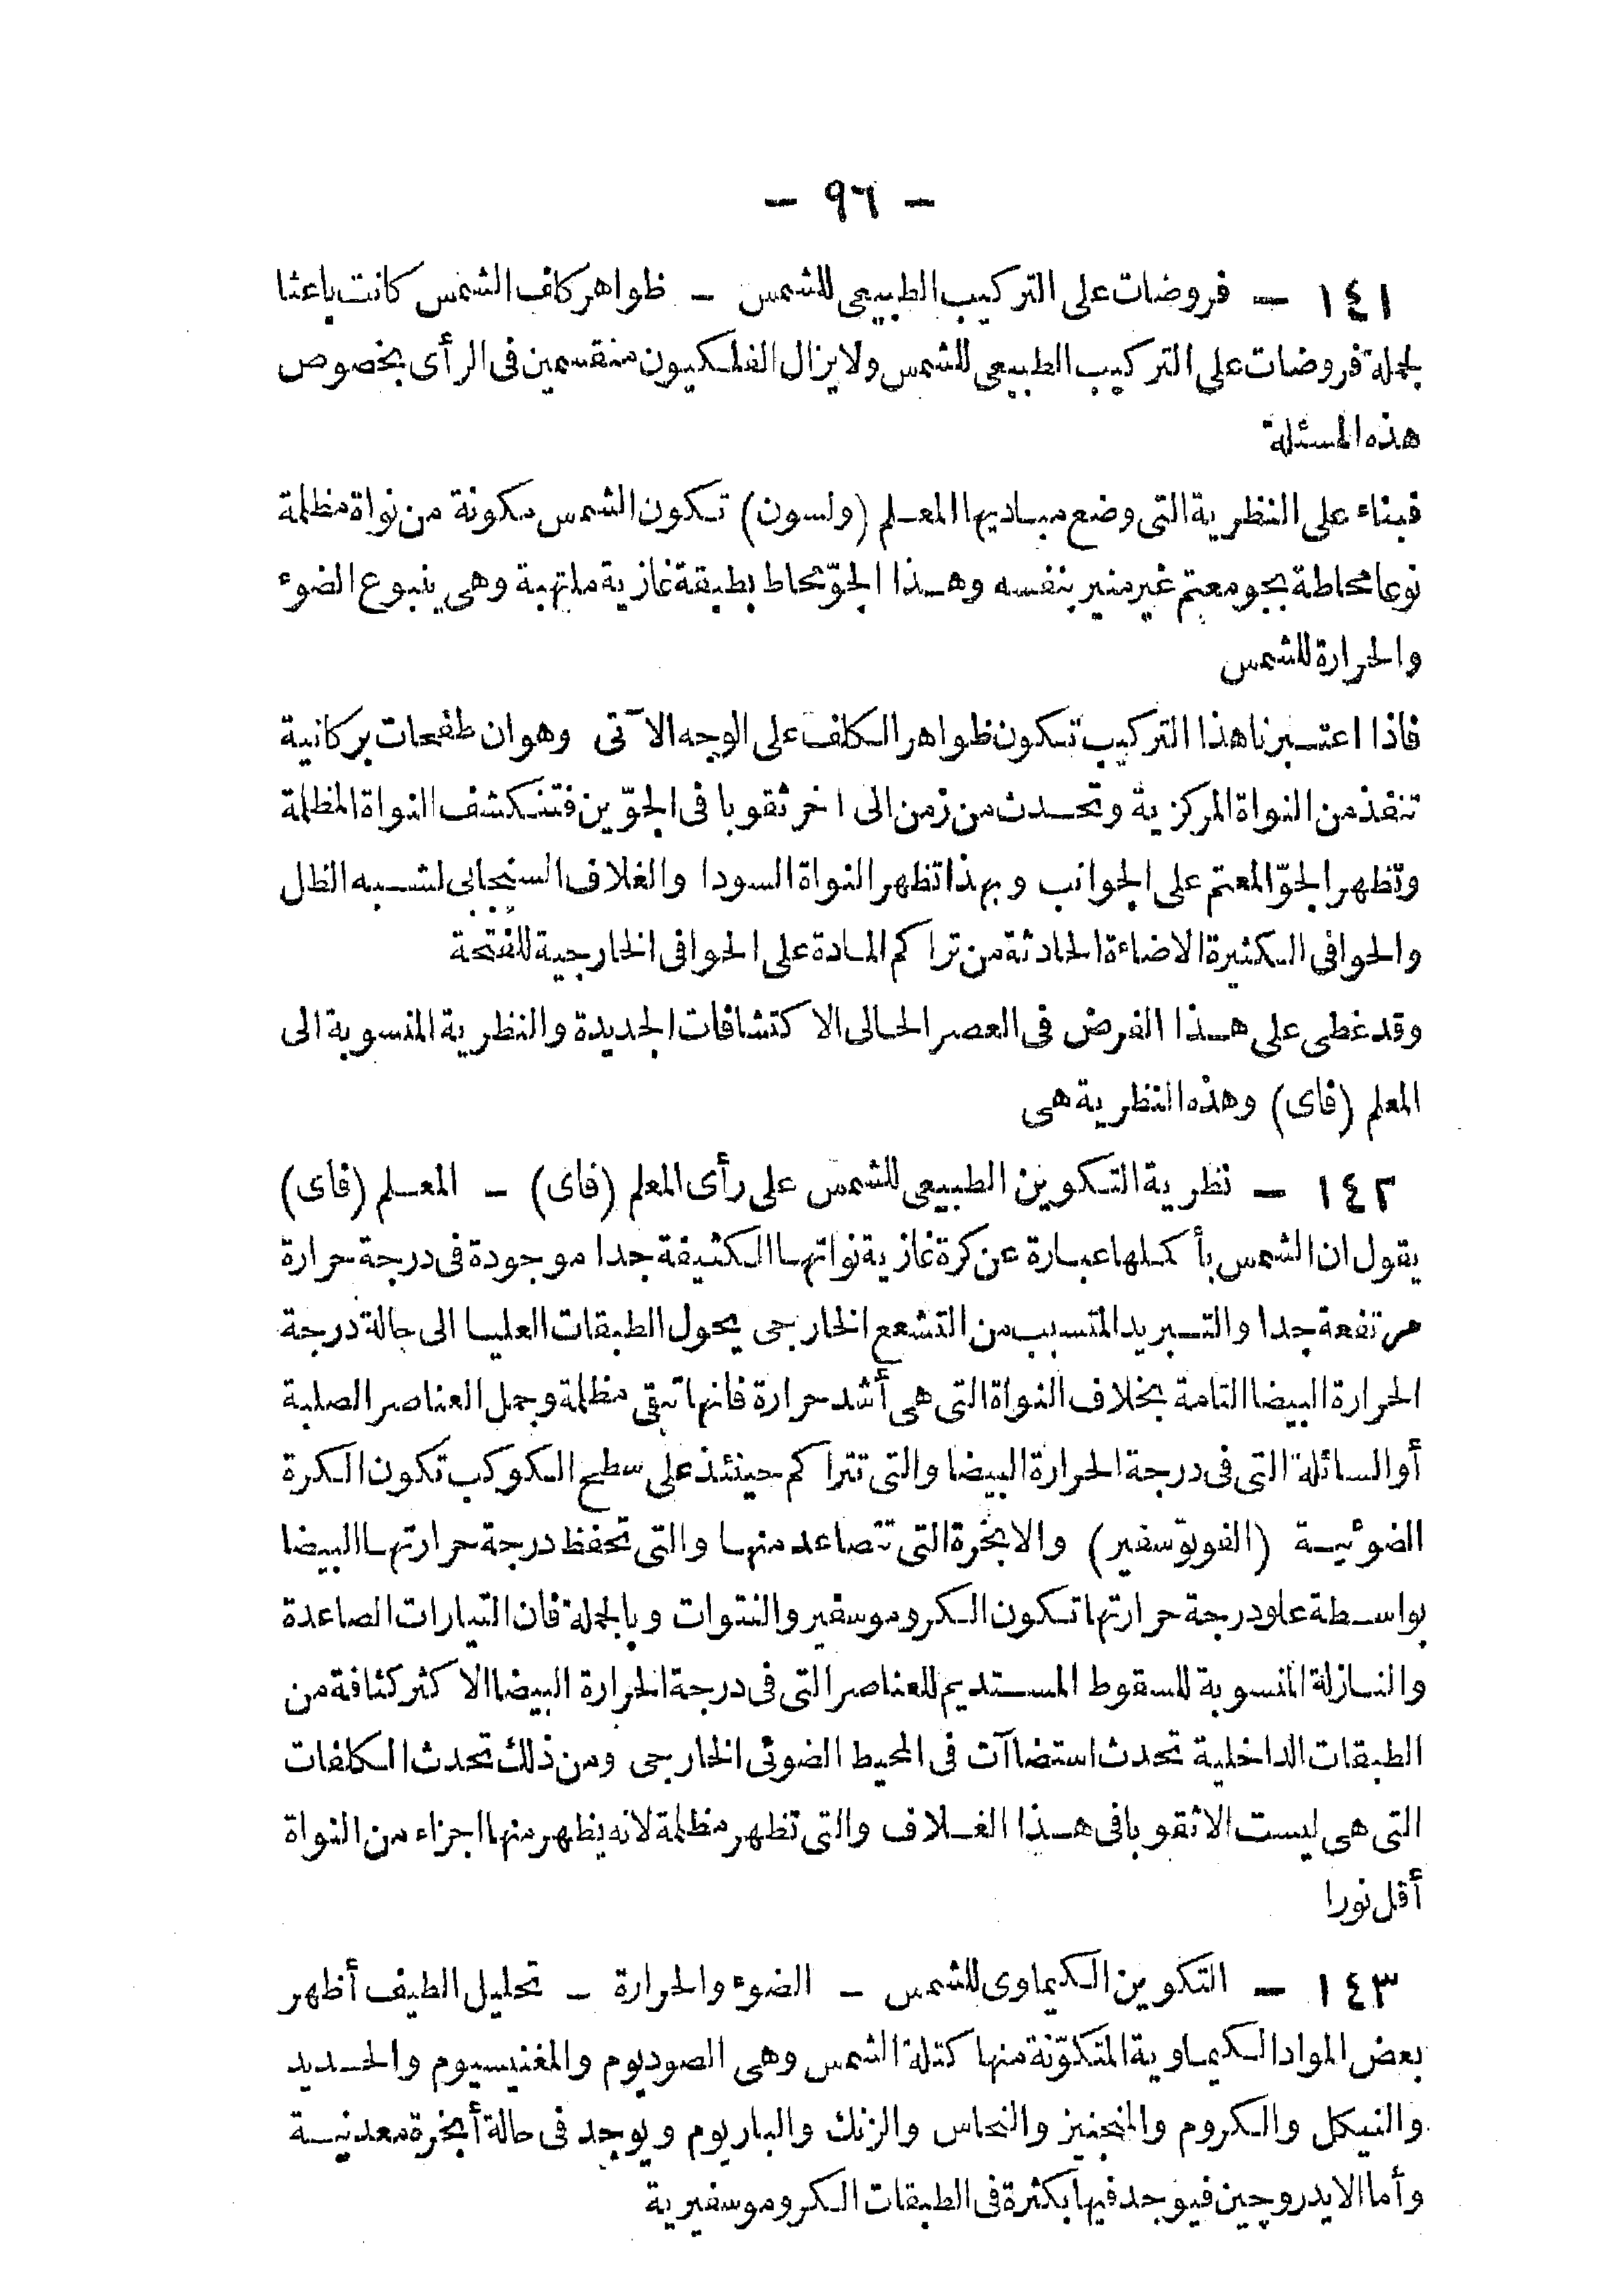 - ٩٦ -
١٤١ - فروضات على التركيب الطبيعى للشمس - ظواهر كلف الشمس كانت باعثا
لجملة فروضات على التركيب الطبيعى للشمس ولايزال الفلكيون منقسمين فى الرأى بخصوص
هذه المسئلة
فبناء على النظرية التى وضع مباديها المعلم (ولسون) تكون الشمس مكونة من نواة مظلمة
نوعا محاطة بجو معتم غير منير بنفسه وهذا الجوّ محاط بطبقة غازية ملتهبة وهى ينبوع الضوء
والحرارة للشمس
فاذا اعتبرنا هذا التركيب تكون ظواهر الكلف على الوجه الآتى وهوان طفحات بركانية
تنفذ من النواة المركزية وتحدث من زمن الى اخر ثقوبا فى الجوّين فتنكشف النواة المظلمة
وتظهر الجوّ المعتم على الجوانب وبهذا تظهر النواة السودا والغلاف السنجابى لشبه الظل
والحوافى الكثيرة الاضاءة الحادثة من تراكم المادة على الحوافى الخارجية للفتحة
وقد غطى على هذا الفرض فى العصر الحالى الاكتشافات الجديدة والنظرية المنسوبة الى
المعلم (فاى) وهذه النظرية هى
١٤٢ - نظرية التكوين الطبيعى للشمس على رأى المعلم (فاى) - المعلم (فاى)
يقول ان الشمس بأكملها عبارة عن كرة غازية نواتها الكثيفة جدا موجودة فى درجة حرارة
مرتفعة جدا والتبريد المتسبب من التشعع الخارجى يحول الطبقات العليا الى حالة درجة
الحرارة البيضا التامة بخلاف النواة التى هى أشد حرارة فانها تبقى مظلمة وجمل العناصر الصلبة
أو السائلة التى فى درجة الحرارة البيضا والتى تتراكم حينئذ على سطح الكوكب تكون الكرة
الضوئية (الفوتوسفير) والابخرة التى تتصاعد منها والتى تحفظ درجة حرارتها البيضا
بواسطة علو درجة حرارتها تكون الكروموسفير والنتوات وبالجملة فان التيارات الصاعدة
والنازلة المنسوبة للسقوط المستديم للعناصر التى فى درجة الحرارة البيضا الاكثر كثافة من
الطبقات الداخلية تحدث استضاآت فى المحيط الضوئى الخارجى ومن ذلك تحدث الكلفات
التى هى ليست الاثقوبا فى هذا الغلاف والتى تظهر مظلمة لانه يظهر منها اجزاء من النواة
أقل نورا
١٤٣ - التكوين الكيماوى للشمس - الضوء والحرارة - تحليل الطيف أظهر
بعض المواد الكيماوية المتكوّنة منها كتلة الشمس وهى الصوديوم والمغنيسيوم والحديد
والنيكل والكروم والمنجنيز والنحاس والزنك والباريوم ويوجد فى حالة أبخرة معدنية
وأما الايدروچين فيوجد فيها بكثرة فى الطبقات الكروموسفيرية